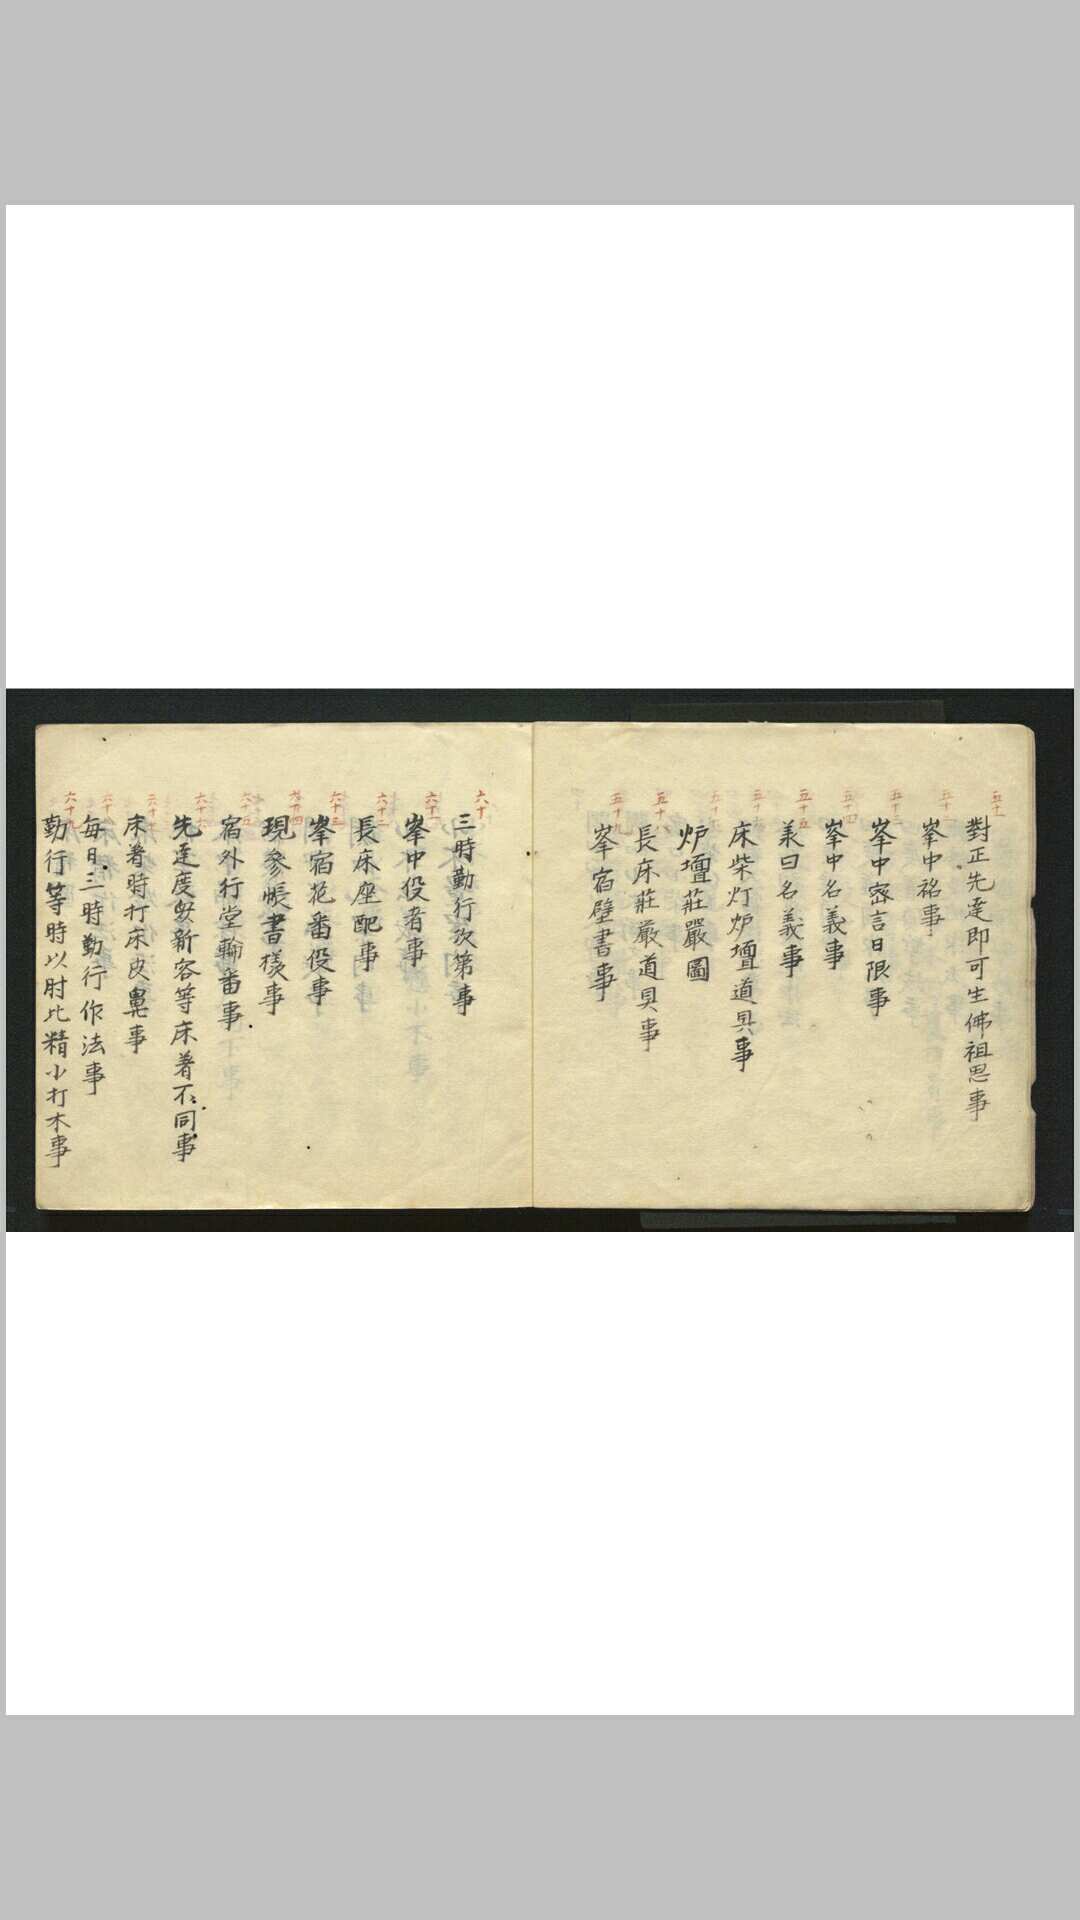 五十一
對正先達即可生佛祖思事
五十二
峯中祕事
五十三
峯中密言日限事
五十四
峯中名義事
五十五
美曰名義事
五十六
床柴灯炉壇道具事
五十七
炉壇莊嚴圖
五十八
長床莊嚴道具事
五十九
峯宿壁書事
六十
三時勤行次第事
六十一
峯中役者事
六十二
長床座配事
六十三
峯宿花番役事
六十四
現參帳書樣事
六十五
宿外行堂輪番事
六十六
先達度衆新客等床著不同事
六十七
床著時打床皮裏事
六十八
每日三時勤行作法事
六十九
勤行等時以肘比精小打木事